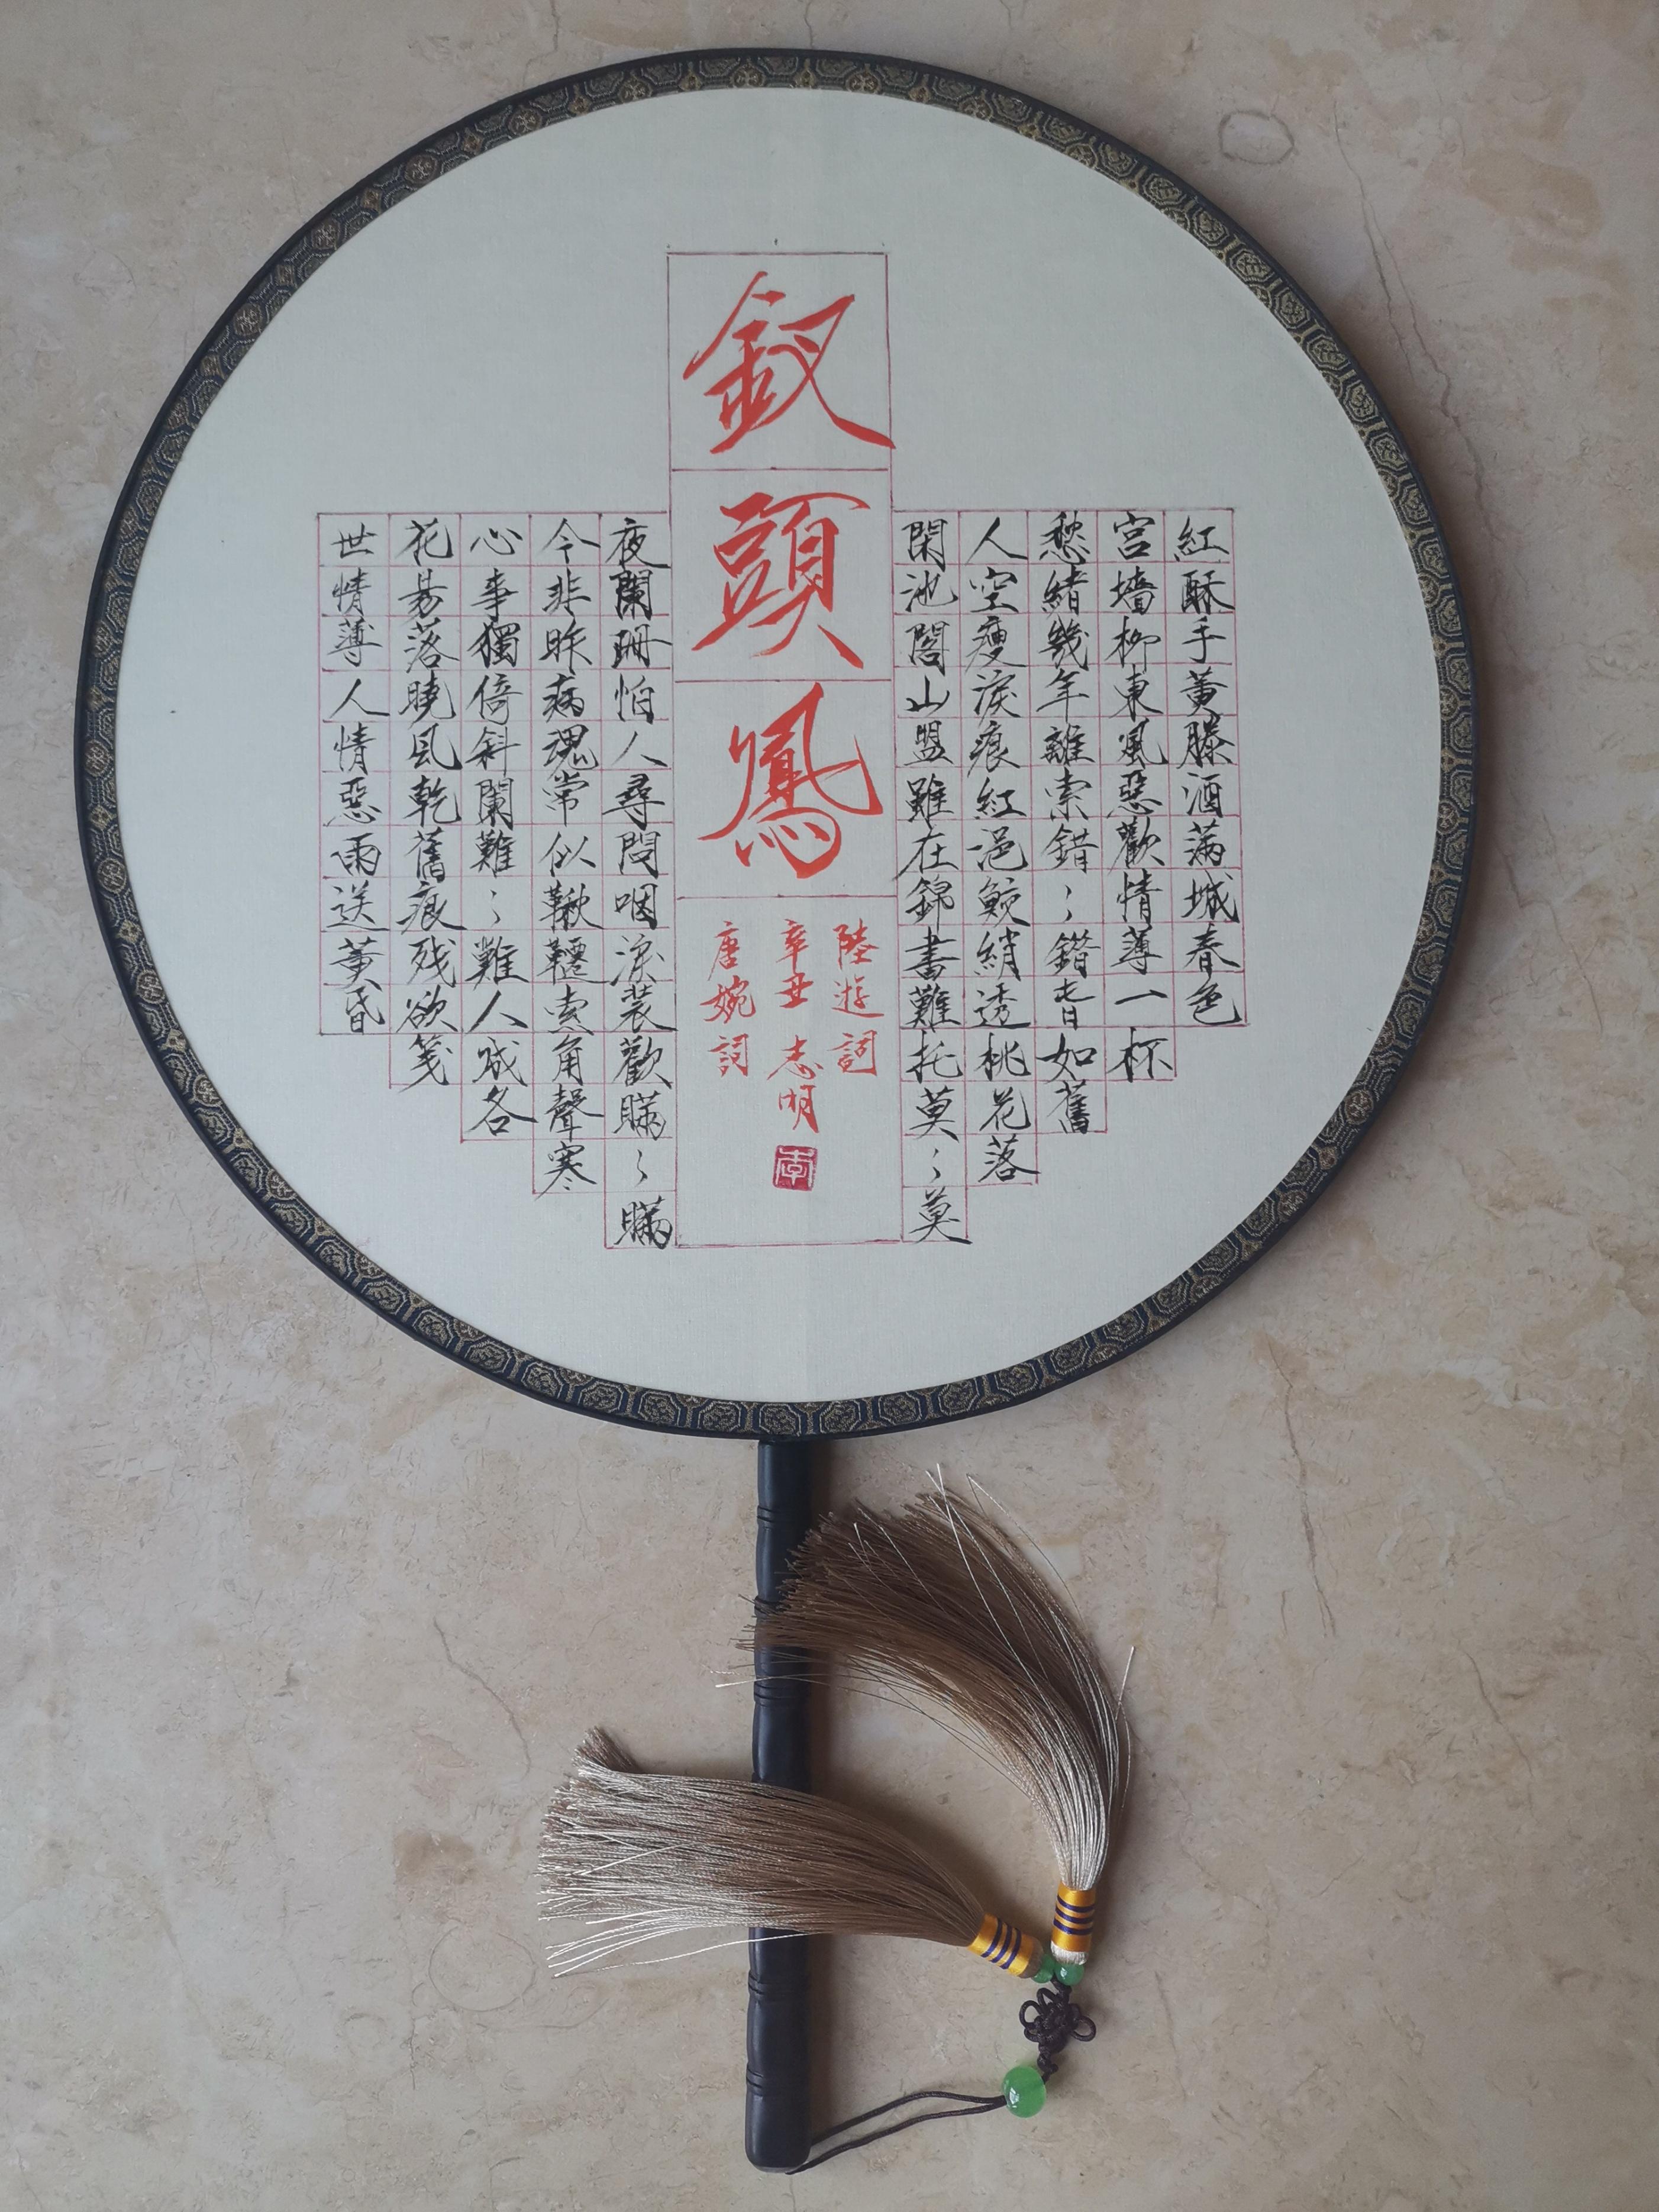 紅酥手黃滕酒滿城春色
宮墻柳東風惡歡情薄一杯
愁緒幾年離索錯〻錯春如舊
人空瘦淚痕紅浥鮫綃透桃花落
閑池閣山盟雖在錦書難托莫〻莫
釵頭鳳
陸游詞
辛丑 志明
李
唐婉詞
世情薄人情惡雨送黃昏
花易落曉風乾舊痕残欲箋
心事獨倚斜闌難〻難人成各
今非昨病魂常似鞦韆索角聲寒
夜闌珊怕人尋問咽淚装歡瞞〻瞞